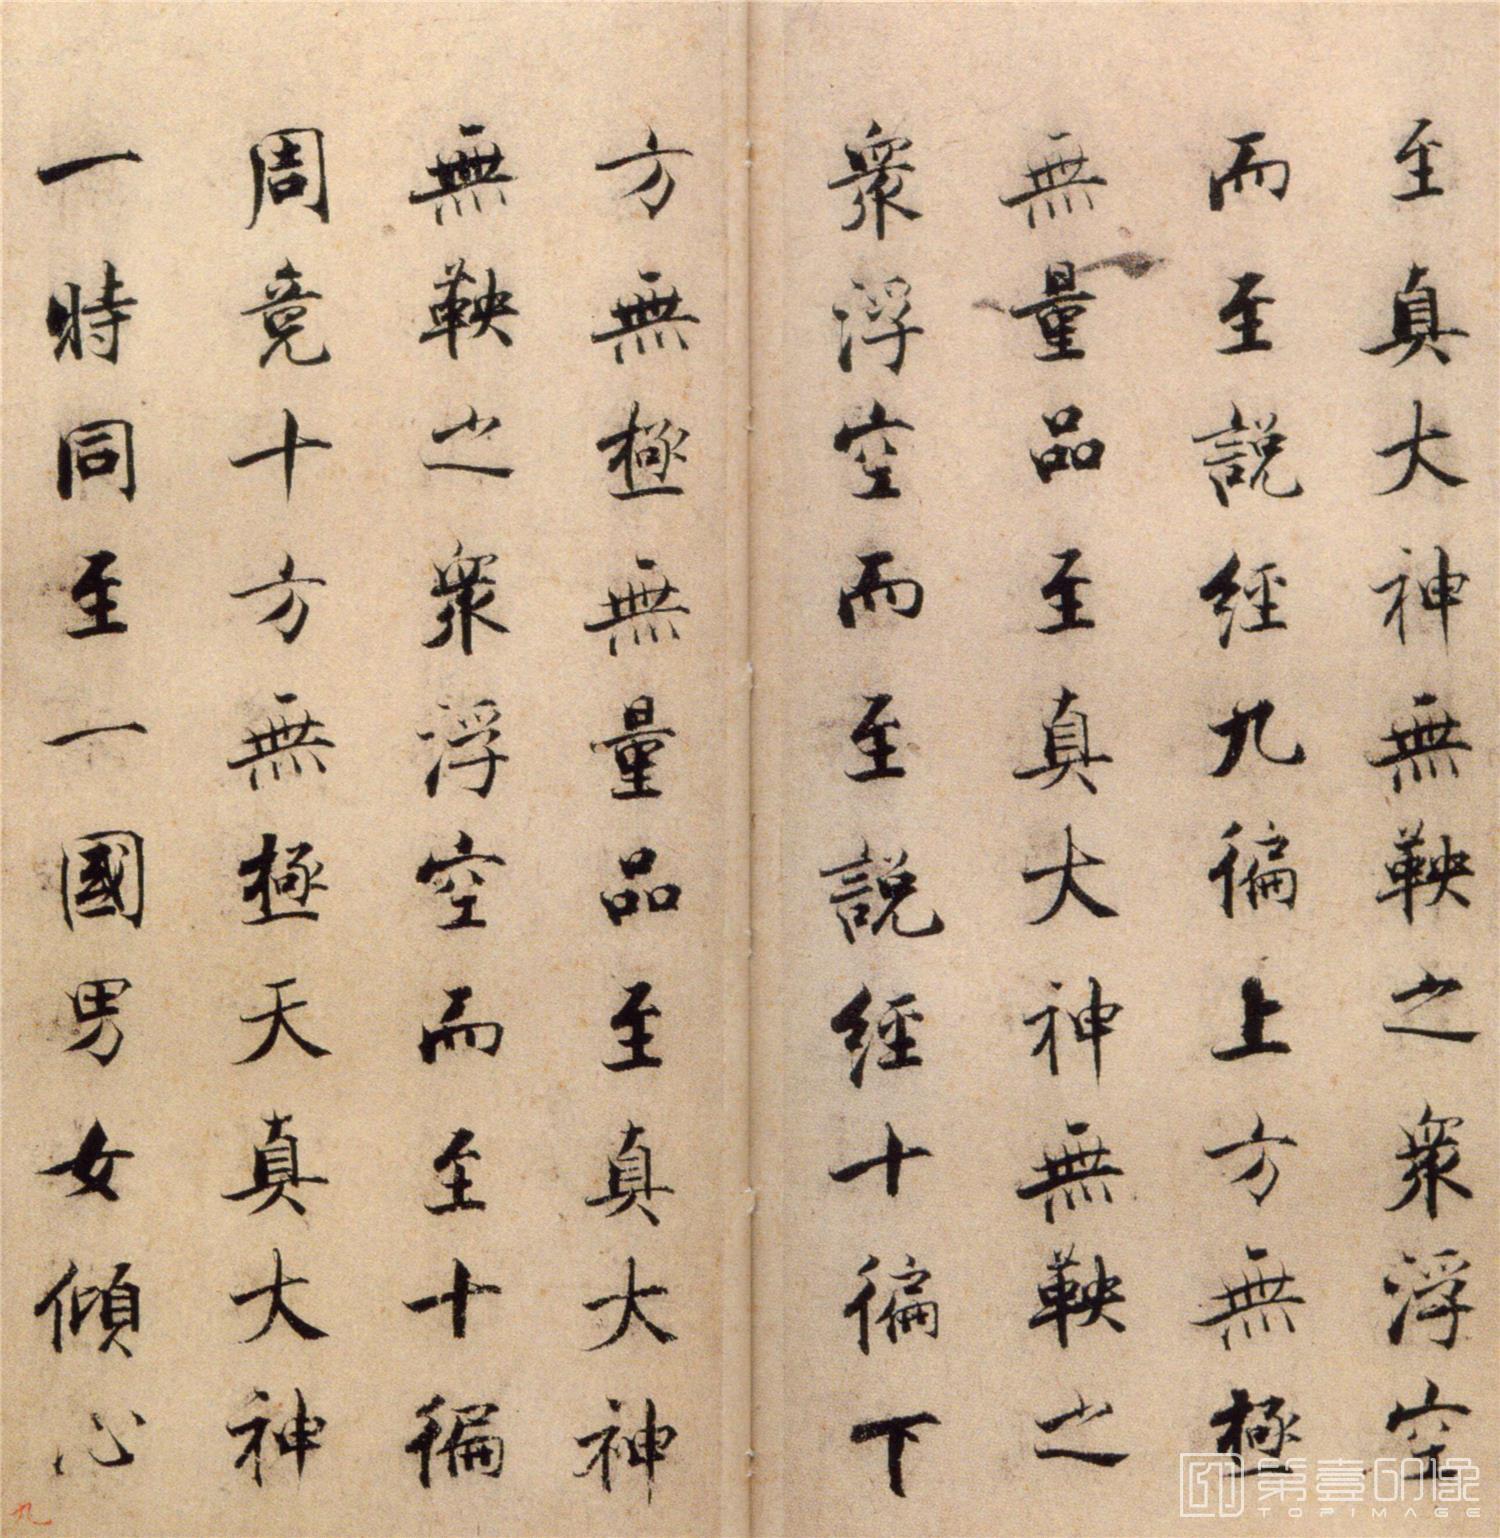 至真大神無鞅之衆浮空
而至説經九徧上方無極
無量品至真大神無鞅之
衆浮空而至説經十徧下
方無極無量品至真大神
無鞅之衆浮空而至十徧
周竟十方無極天真大神
一時同至一國男女傾心
九
第壹印像
TOPIMAGE